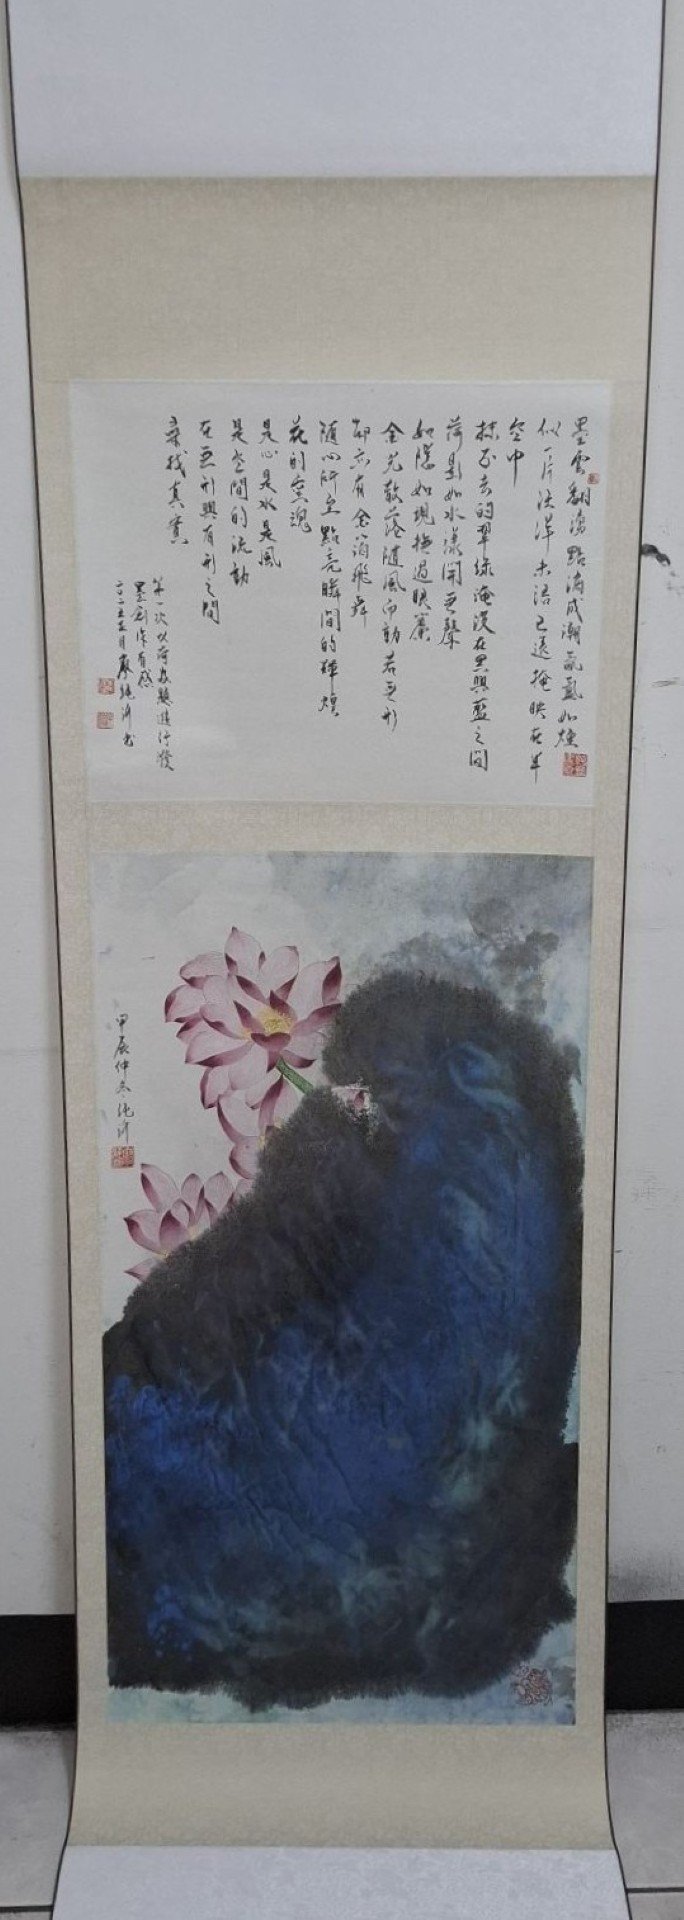 墨雲翻湧點滴成潮氤氳如煙
似一片汪洋未語已遠掩映在半
空中
抹不去的翠綠淹沒在黑與藍之間
荷影如水漾開無聲
如隱如現拂過映簾
金光散落隨風而動若無形
卻亦有金箔飛舞
隨心所至點亮瞬間的輝煌
花的靈魂
是心是水是風
是空間的流動
在無形與有形之間
尋找真實
第一次以荷為題進行潑
墨創作有感
二〇二五五月廖純沂書
甲辰仲冬純沂